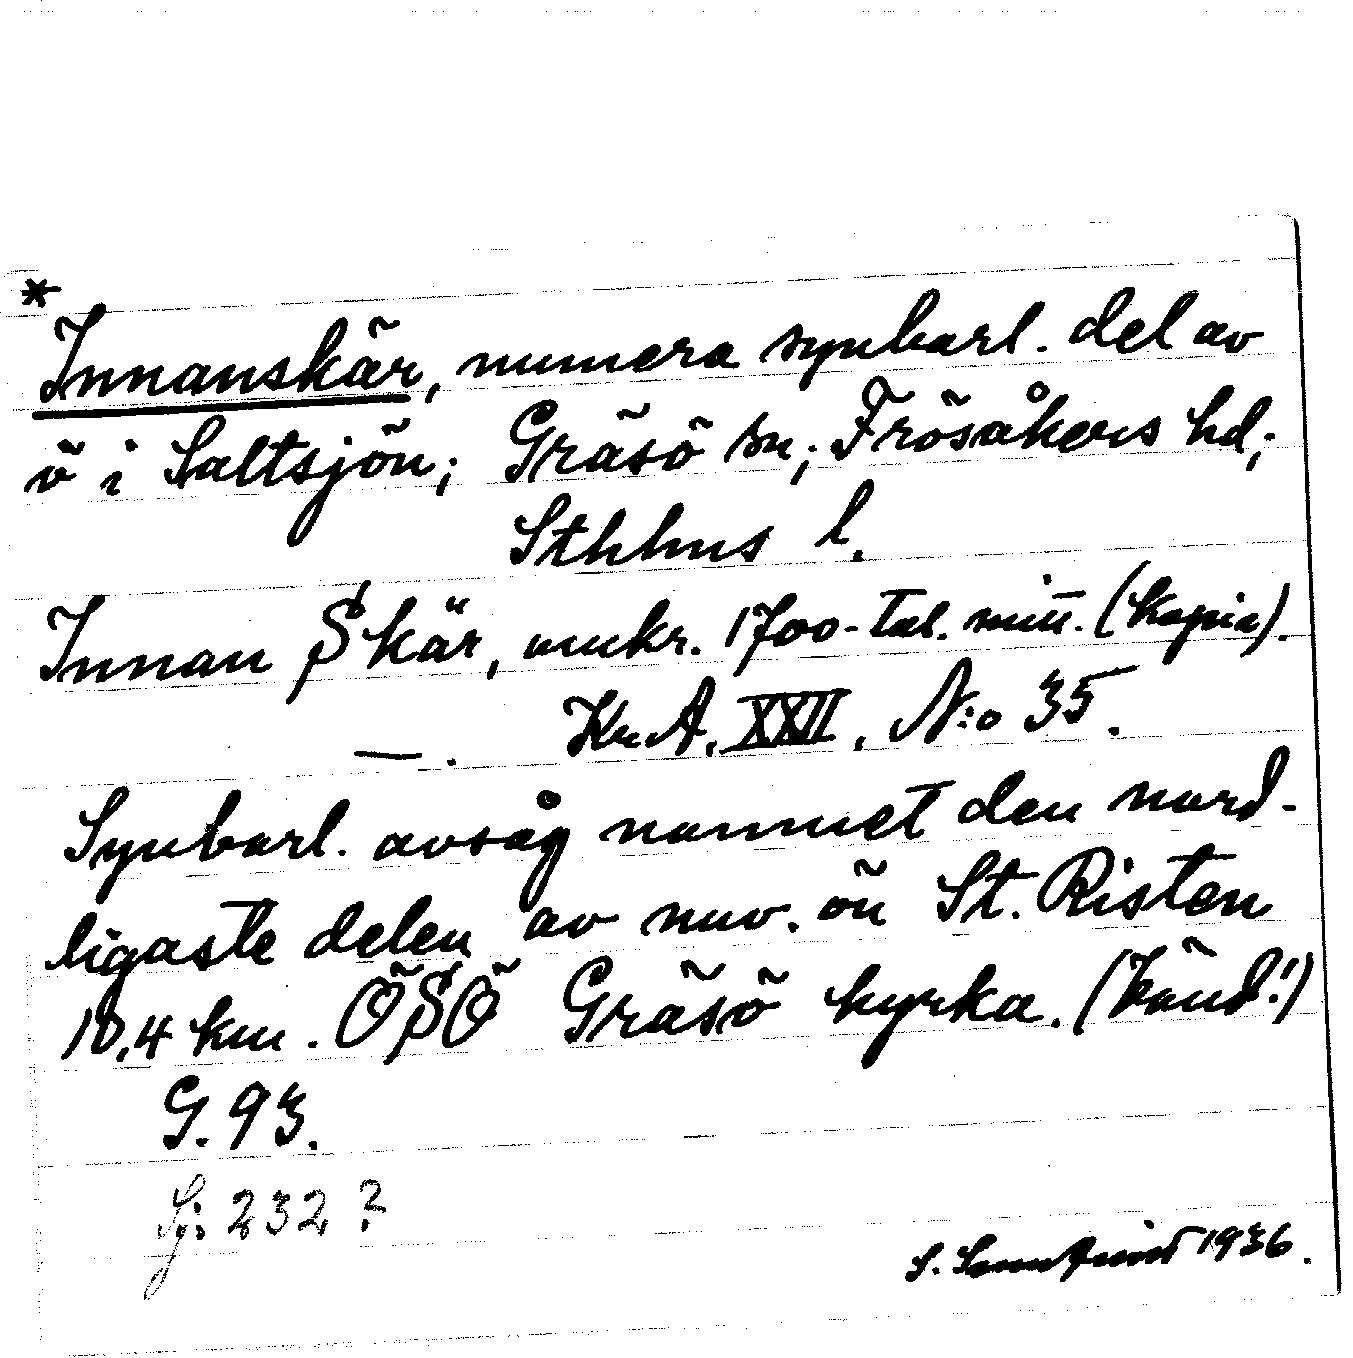 *
Innanskär, numera synbarl. del av
ö i Saltsjön; Gräsö sn; Frösåkers hd;
Sthlms l.
Innan Skär, omkr. 1700-tal. mitt. (kopia).
—. Kr.A. XXII, N:o 35.
Synbarl. avsåg namnet den nord-
ligaste delen av nuv. ön St. Risten
10,4 km. ÖSÖ Gräsö kyrka. (känd!)
G. 93.
Sj: 232 ?
S. 1936.